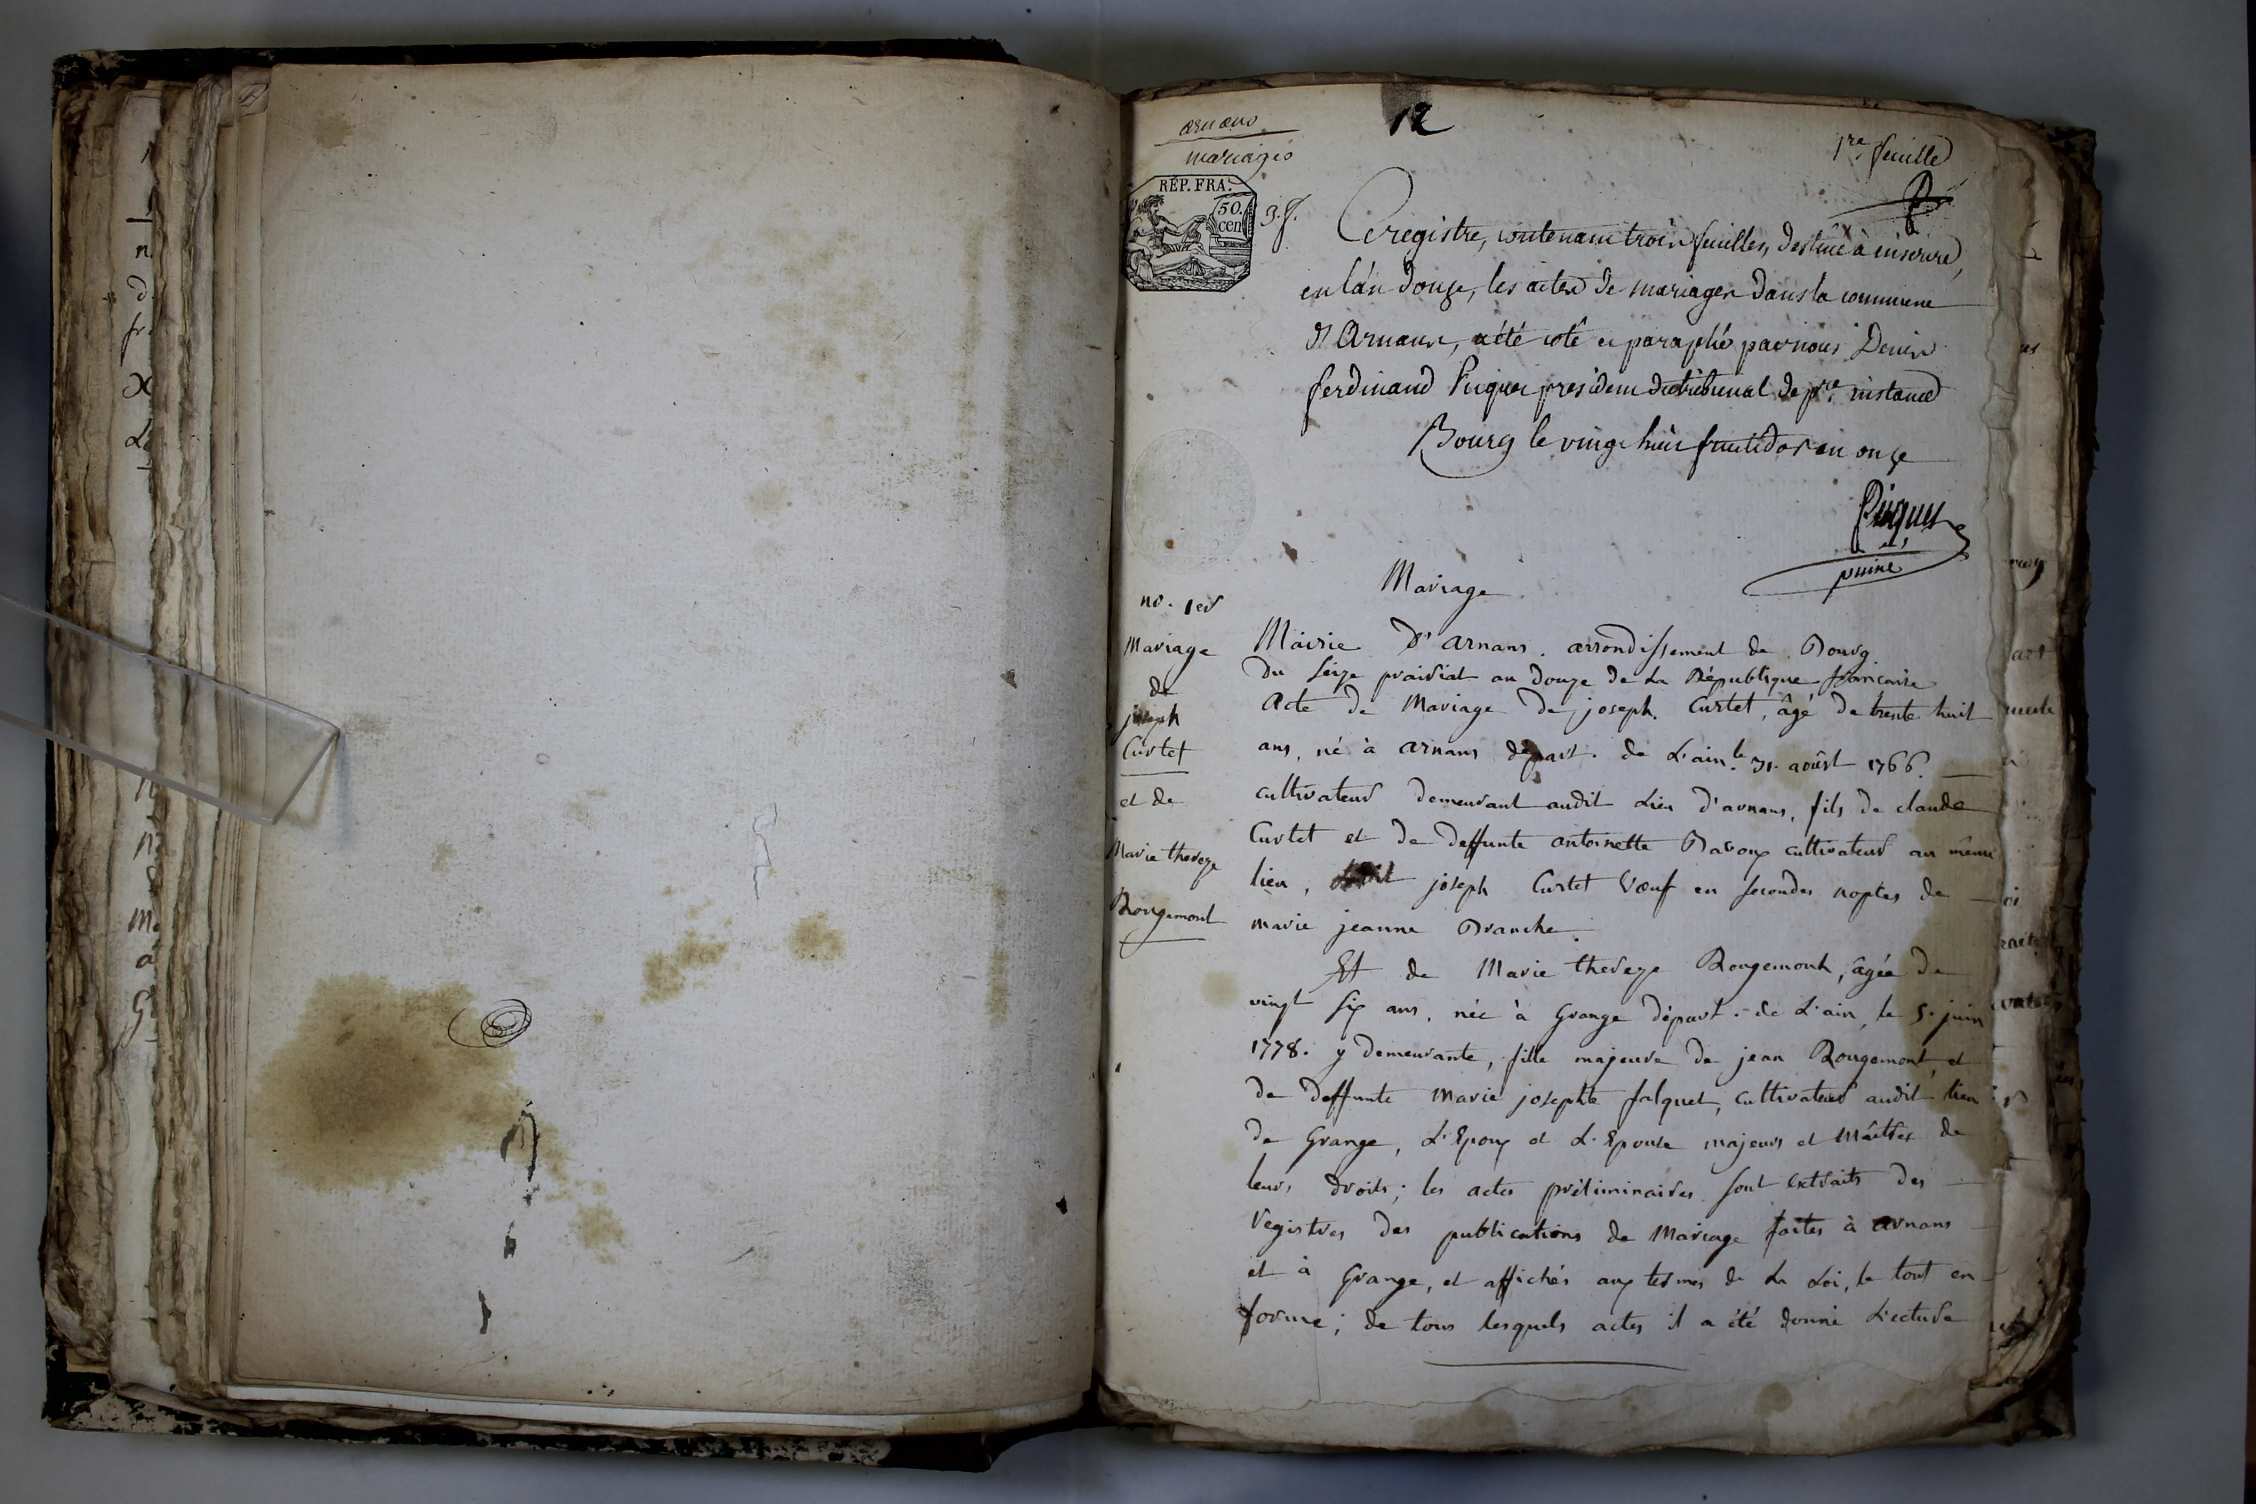 arnans
12
1re feuille
mariages
RÉP. FRA.
50.
cen
3. f.
Ce registre, contenant trois feuilles, destiné à inscrire,
en l'an douze, les actes de mariages dans la commune
d'Arnans, a été coté et paraphé par nous Denis
ferdinand Piquet président du tribunal de pre. instance
Bourg le vingt huit fructidor an onze
Piquet
puiné
Mariage
no. 1er
Mariage
de
joseph
Curtet
et de
Marie thereze
Rougemont
Mairie d'arnans. arrondissement de Bourg
Du seize prairial an douze de La République francaise
Acte de Mariage de joseph. Curtet, âgé de trente huit
ans, né à arnans départ. de L'ain, le 31. aoûst 1766.
cultivateur demeurant audit Lieu d'arnans, fils de claude
Curtet et de deffunte antoinette Ravoux cultivateur au même
lieu, joseph Curtet Vœuf en secondes noptes de
marie jeanne Branche.
Et de Marie thereze Rougemont, âgée de
vingt six ans, née à Grange départ. de L'ain, le 5. juin
1778. y demeurante, fille majeure de jean Rougemont, et
de deffunte Marie josephte falquet, cultivateur audit lieu
de Grange, L'Epoux et L'Epouse majeurs et Maitres de
leurs droits; les actes préliminaires sont extraits des
Registres des publications de Mariage faites à arnans
et à Grange, et affichés aux termes de La Loi, le tout en
forme; de tous lesquels actes il a été donné Lecture